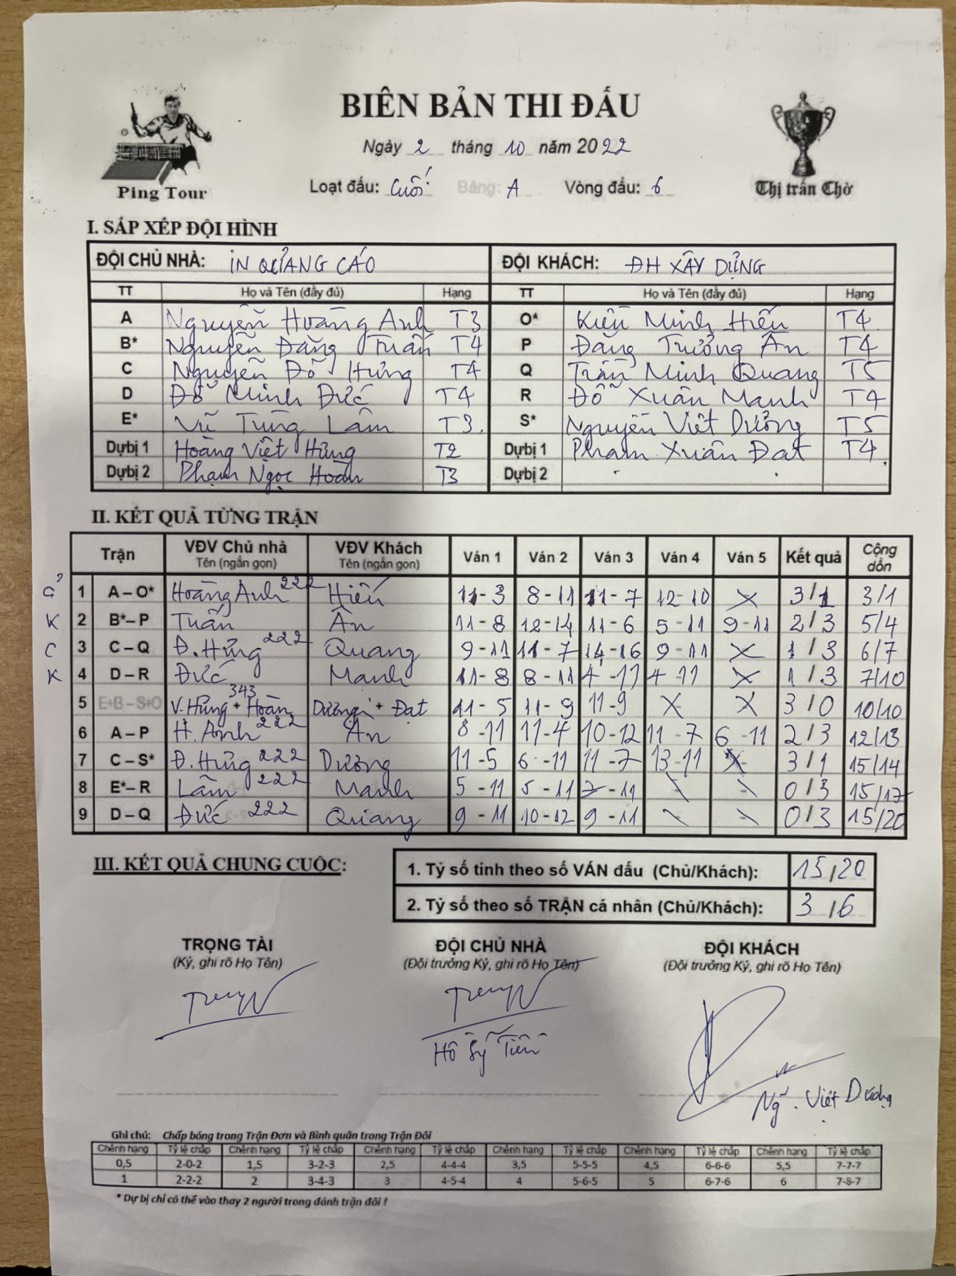 BIÊN BẢN THI ĐẤU
Ping Tour
Thị trấn Chờ
Ngày 2 tháng 10 năm 2022
Loạt đấu: Cuối Bảng: A Vòng đấu: 6
I. SẮP XẾP ĐỘI HÌNH
ĐỘI CHỦ NHÀ: IN QUẢNG CÁO ĐỘI KHÁCH: ĐH XÂY DỰNG
TT Họ và Tên (đầy đủ) Hạng TT Họ và Tên (đầy đủ) Hạng
A Nguyễn Hoàng Anh T3 O* Kiều Minh Hiếu T4
B* Nguyễn Đăng Tuấn T4 P Đặng Trường Ân T4
C Nguyễn Đỗ Hưng T4 Q Trần Minh Quang T5
D Đỗ Minh Đức T4 R Đỗ Xuân Mạnh T4
E* Vũ Tùng Lâm T3. S* Nguyễn Viết Dương T5
Dự bị 1 Hoàng Việt Hùng T2 Dự bị 1 Phạm Xuân Đạt T4.
Dự bị 2 Phạm Ngọc Hoàn T3 Dự bị 2
II. KẾT QUẢ TỪNG TRẬN
Trận VĐV Chủ nhà Tên (ngắn gọn) VĐV Khách Tên (ngắn gọn) Ván 1 Ván 2 Ván 3 Ván 4 Ván 5 Kết quả Cộng dồn
1 A – O* Hoàng Anh 222 Hiếu 11-3 8-11 11-7 12-10 X 3/1 3/1
K 2 B*– P Tuấn Ân 11-8 12-14 11-6 5-11 9-11 2/3 5/4
C 3 C – Q Đ.Hưng 222 Quang 9-11 11-7 14-16 9-11 X 1/3 6/7
K 4 D – R Đức Mạnh 11-8 8-11 4-11 4-11 X 1/3 7/10
5 E+B – S+O V.Hùng + Hoàn 343 Dương + Đạt 11-5 11-9 11-9 X X 3/0 10/10
6 A – P H.Anh 222 Ân 8-11 11-4 10-12 11-7 6-11 2/3 12/13
7 C – S* Đ.Hưng 222 Dương 11-5 6-11 11-7 13-11 X 3/1 15/14
8 E*– R Lâm 222 Mạnh 5-11 5-11 7-11 \ \ 0/3 15/17
9 D – Q Đức 222 Quang 9-11 10-12 9-11 \ \ 0/3 15/20
III. KẾT QUẢ CHUNG CUỘC:
1. Tỷ số tính theo số VÁN đấu (Chủ/Khách): 15/20
2. Tỷ số theo số TRẬN cá nhân (Chủ/Khách): 3/6
TRỌNG TÀI ĐỘI CHỦ NHÀ ĐỘI KHÁCH
(Ký, ghi rõ Họ Tên) (Đội trưởng Ký, ghi rõ Họ Tên) (Đội trưởng Ký, ghi rõ Họ Tên)
Hồ Sỹ Tiến
Ng. Viết Dương
Ghi chú: Chấp bóng trong Trận Đơn và Bình quân trong Trận Đôi
Chênh hạng Tỷ lệ chấp Chênh hạng Tỷ lệ chấp Chênh hạng Tỷ lệ chấp Chênh hạng Tỷ lệ chấp Chênh hạng Tỷ lệ chấp Chênh hạng Tỷ lệ chấp
0,5 2-0-2 1,5 3-2-3 2,5 4-4-4 3,5 5-5-5 4,5 6-6-6 5,5 7-7-7
1 2-2-2 2 3-4-3 3 4-5-4 4 5-6-5 5 6-7-6 6 7-8-7
* Dự bị chỉ có thể vào thay 2 người trong đánh trận đôi !